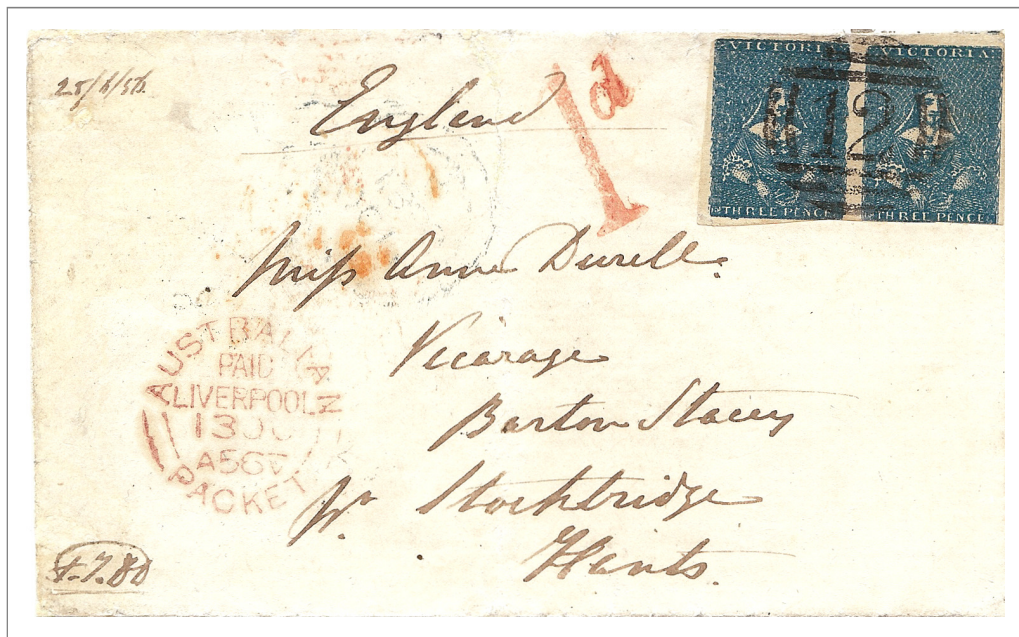 25/6/56
England
1d
VICTORIA VICTORIA
12
THREE PENCE THREE PENCE
Miss Anne Durell.
Vicarage
Barton Stacey
Nr. Stockbridge
Hants.
AUSTRALIAN
PAID
LIVERPOOL
13
A56
PACKET